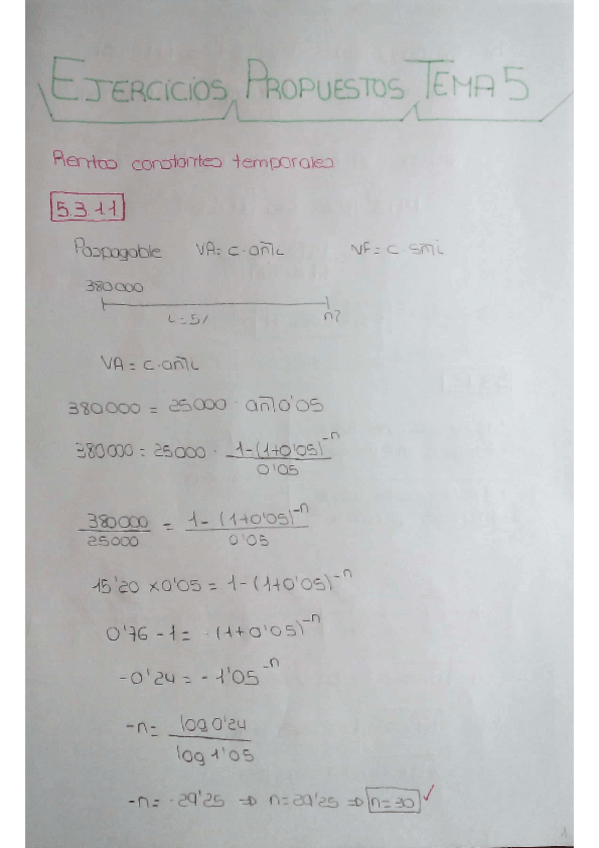 EJERCICIOS PROPUESTOS TEMA 5
Rentas constantes temporales
5.3.11
Pospagable VA = c·an̅|i VF = c sn̅|i
380000
i=5% n?
VA = c·an̅|i
380000 = 25000 · an̅|0'05
380000 = 25000 · 1-(1+0'05)^-n / 0'05
380000 / 25000 = 1-(1+0'05)^-n / 0'05
15'20 x0'05 = 1-(1+0'05)^-n
0'76 -1 = -(1+0'05)^-n
-0'24 = -1'05^-n
-n = log 0'24 / log 1'05
-n = -29'25 ⇒ n=29'25 ⇒ n=30 ✓
1